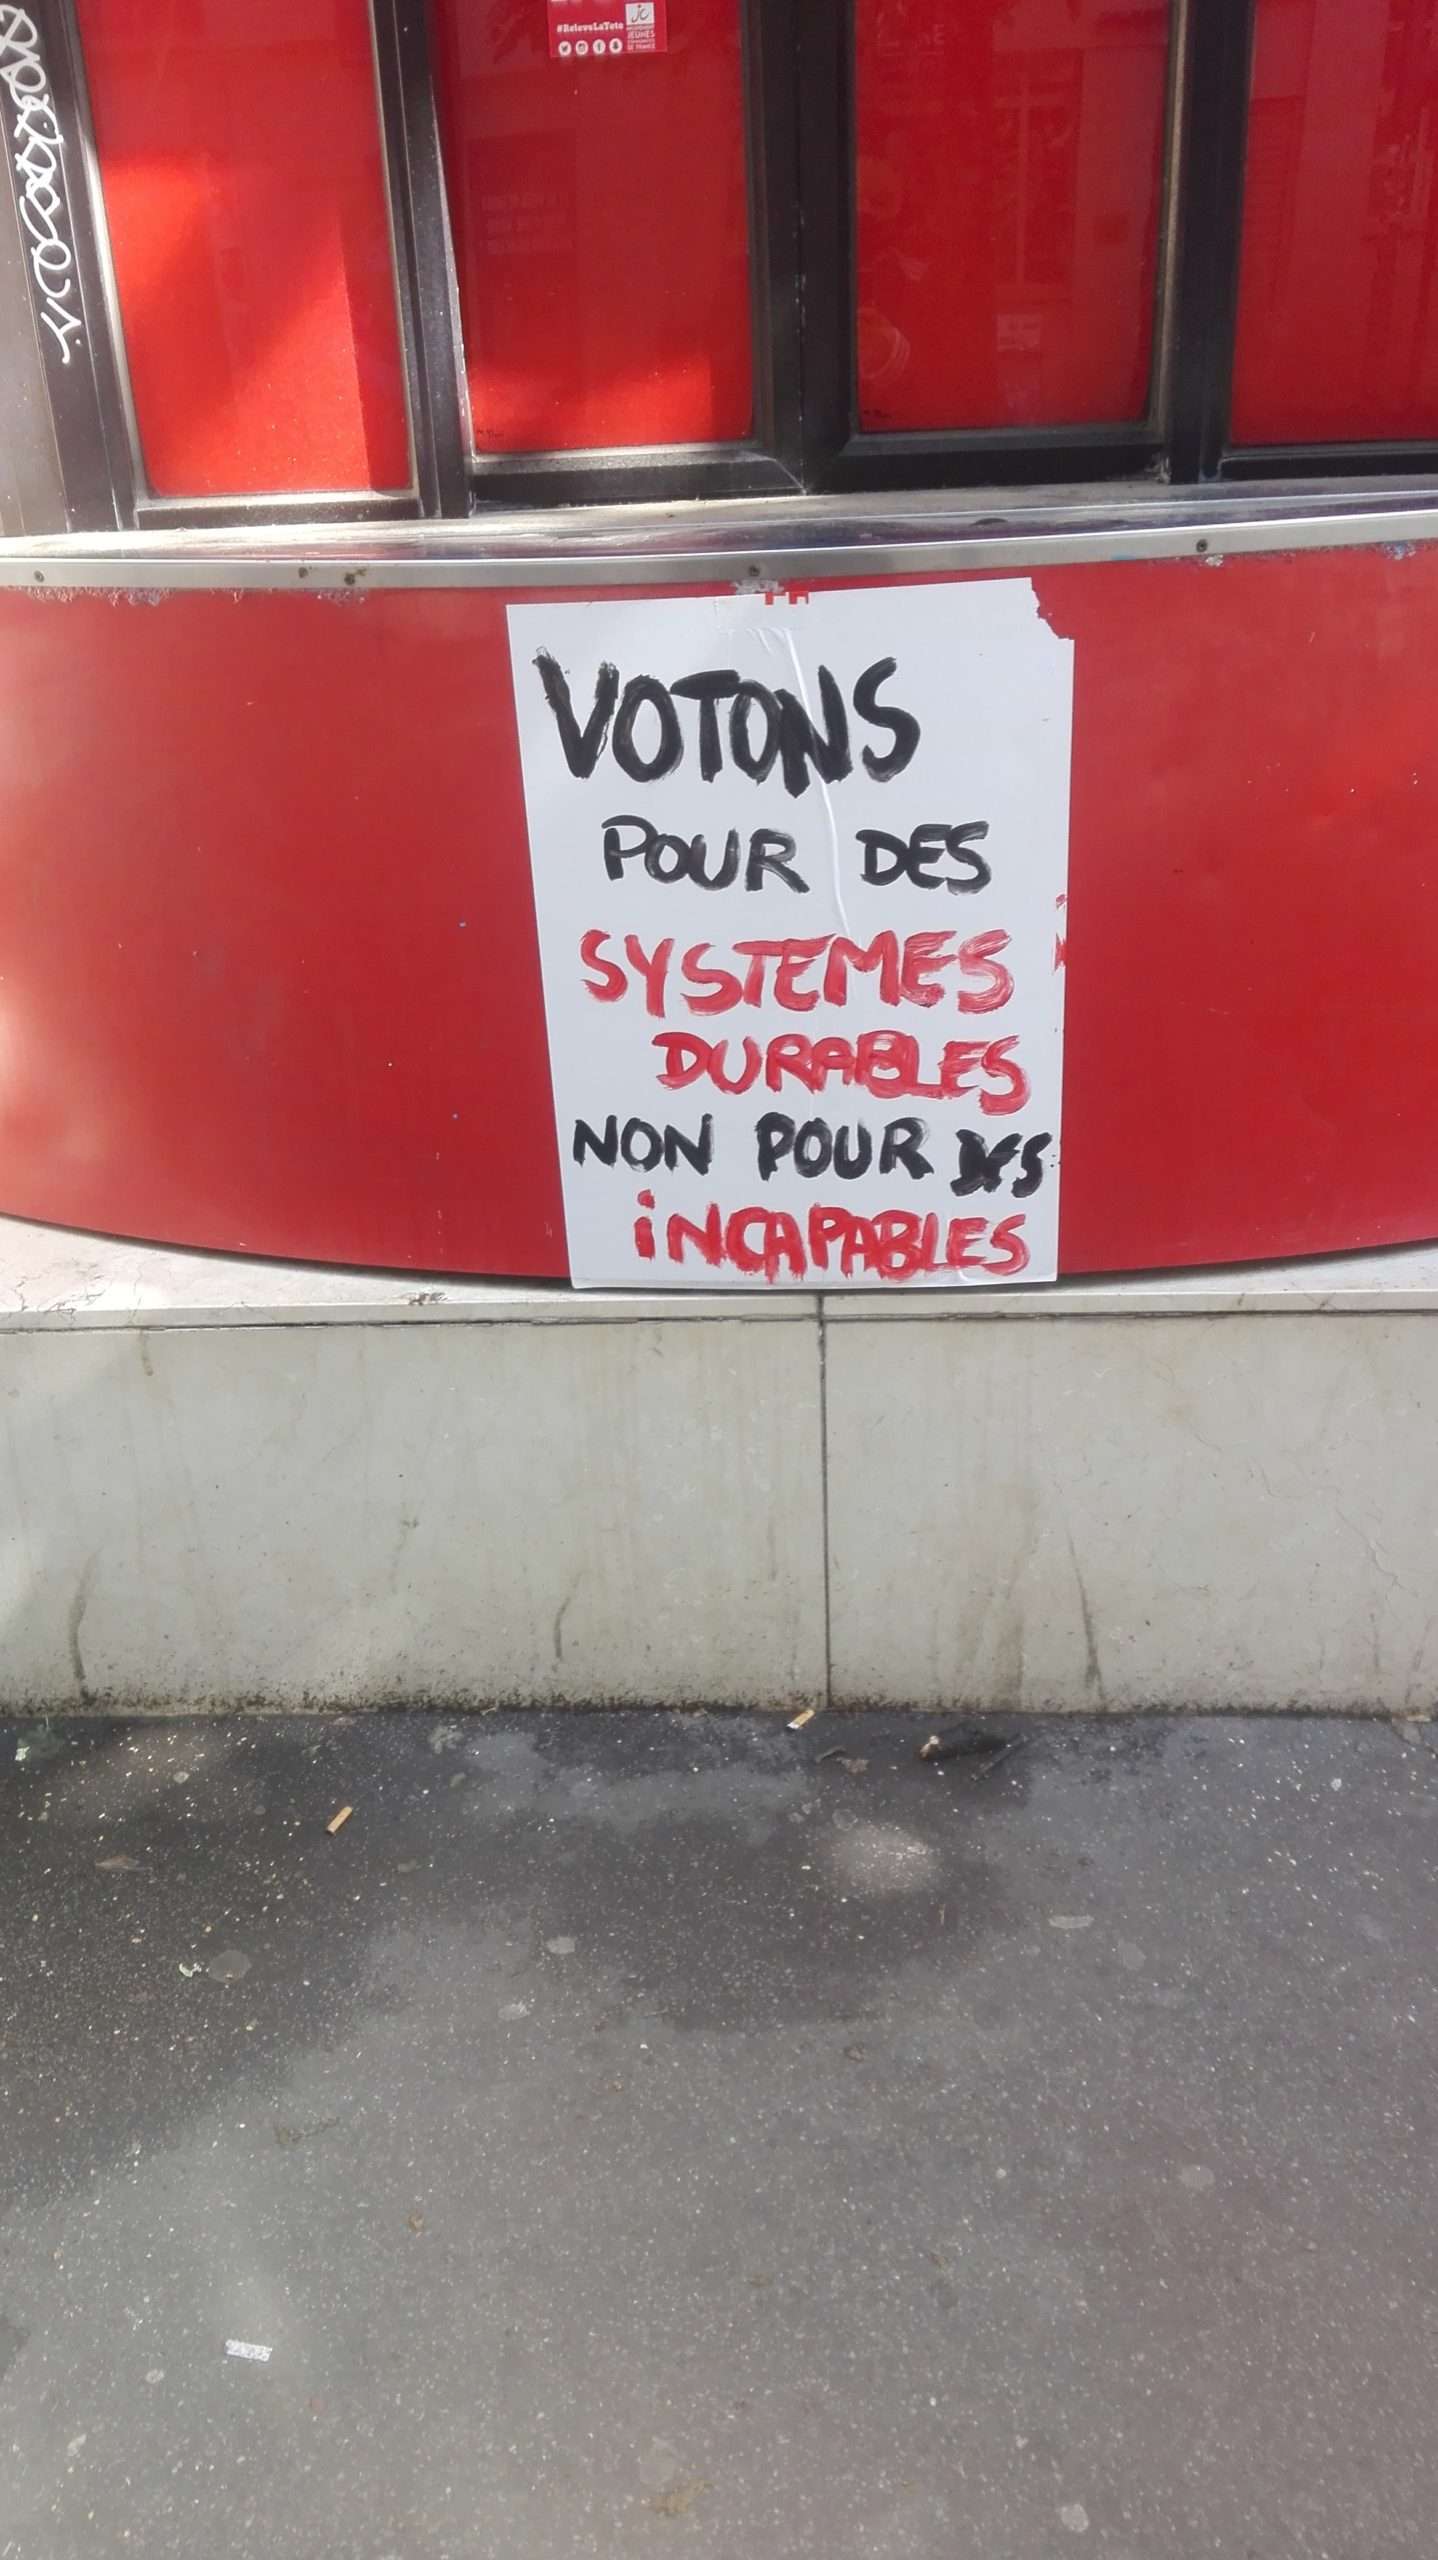 #ReleveLaTete
jc
JEUNES
COMMUNISTES
DE FRANCE
VOTONS
POUR DES
SYSTEMES
DURABLES
NON POUR DES
iNCAPABLES